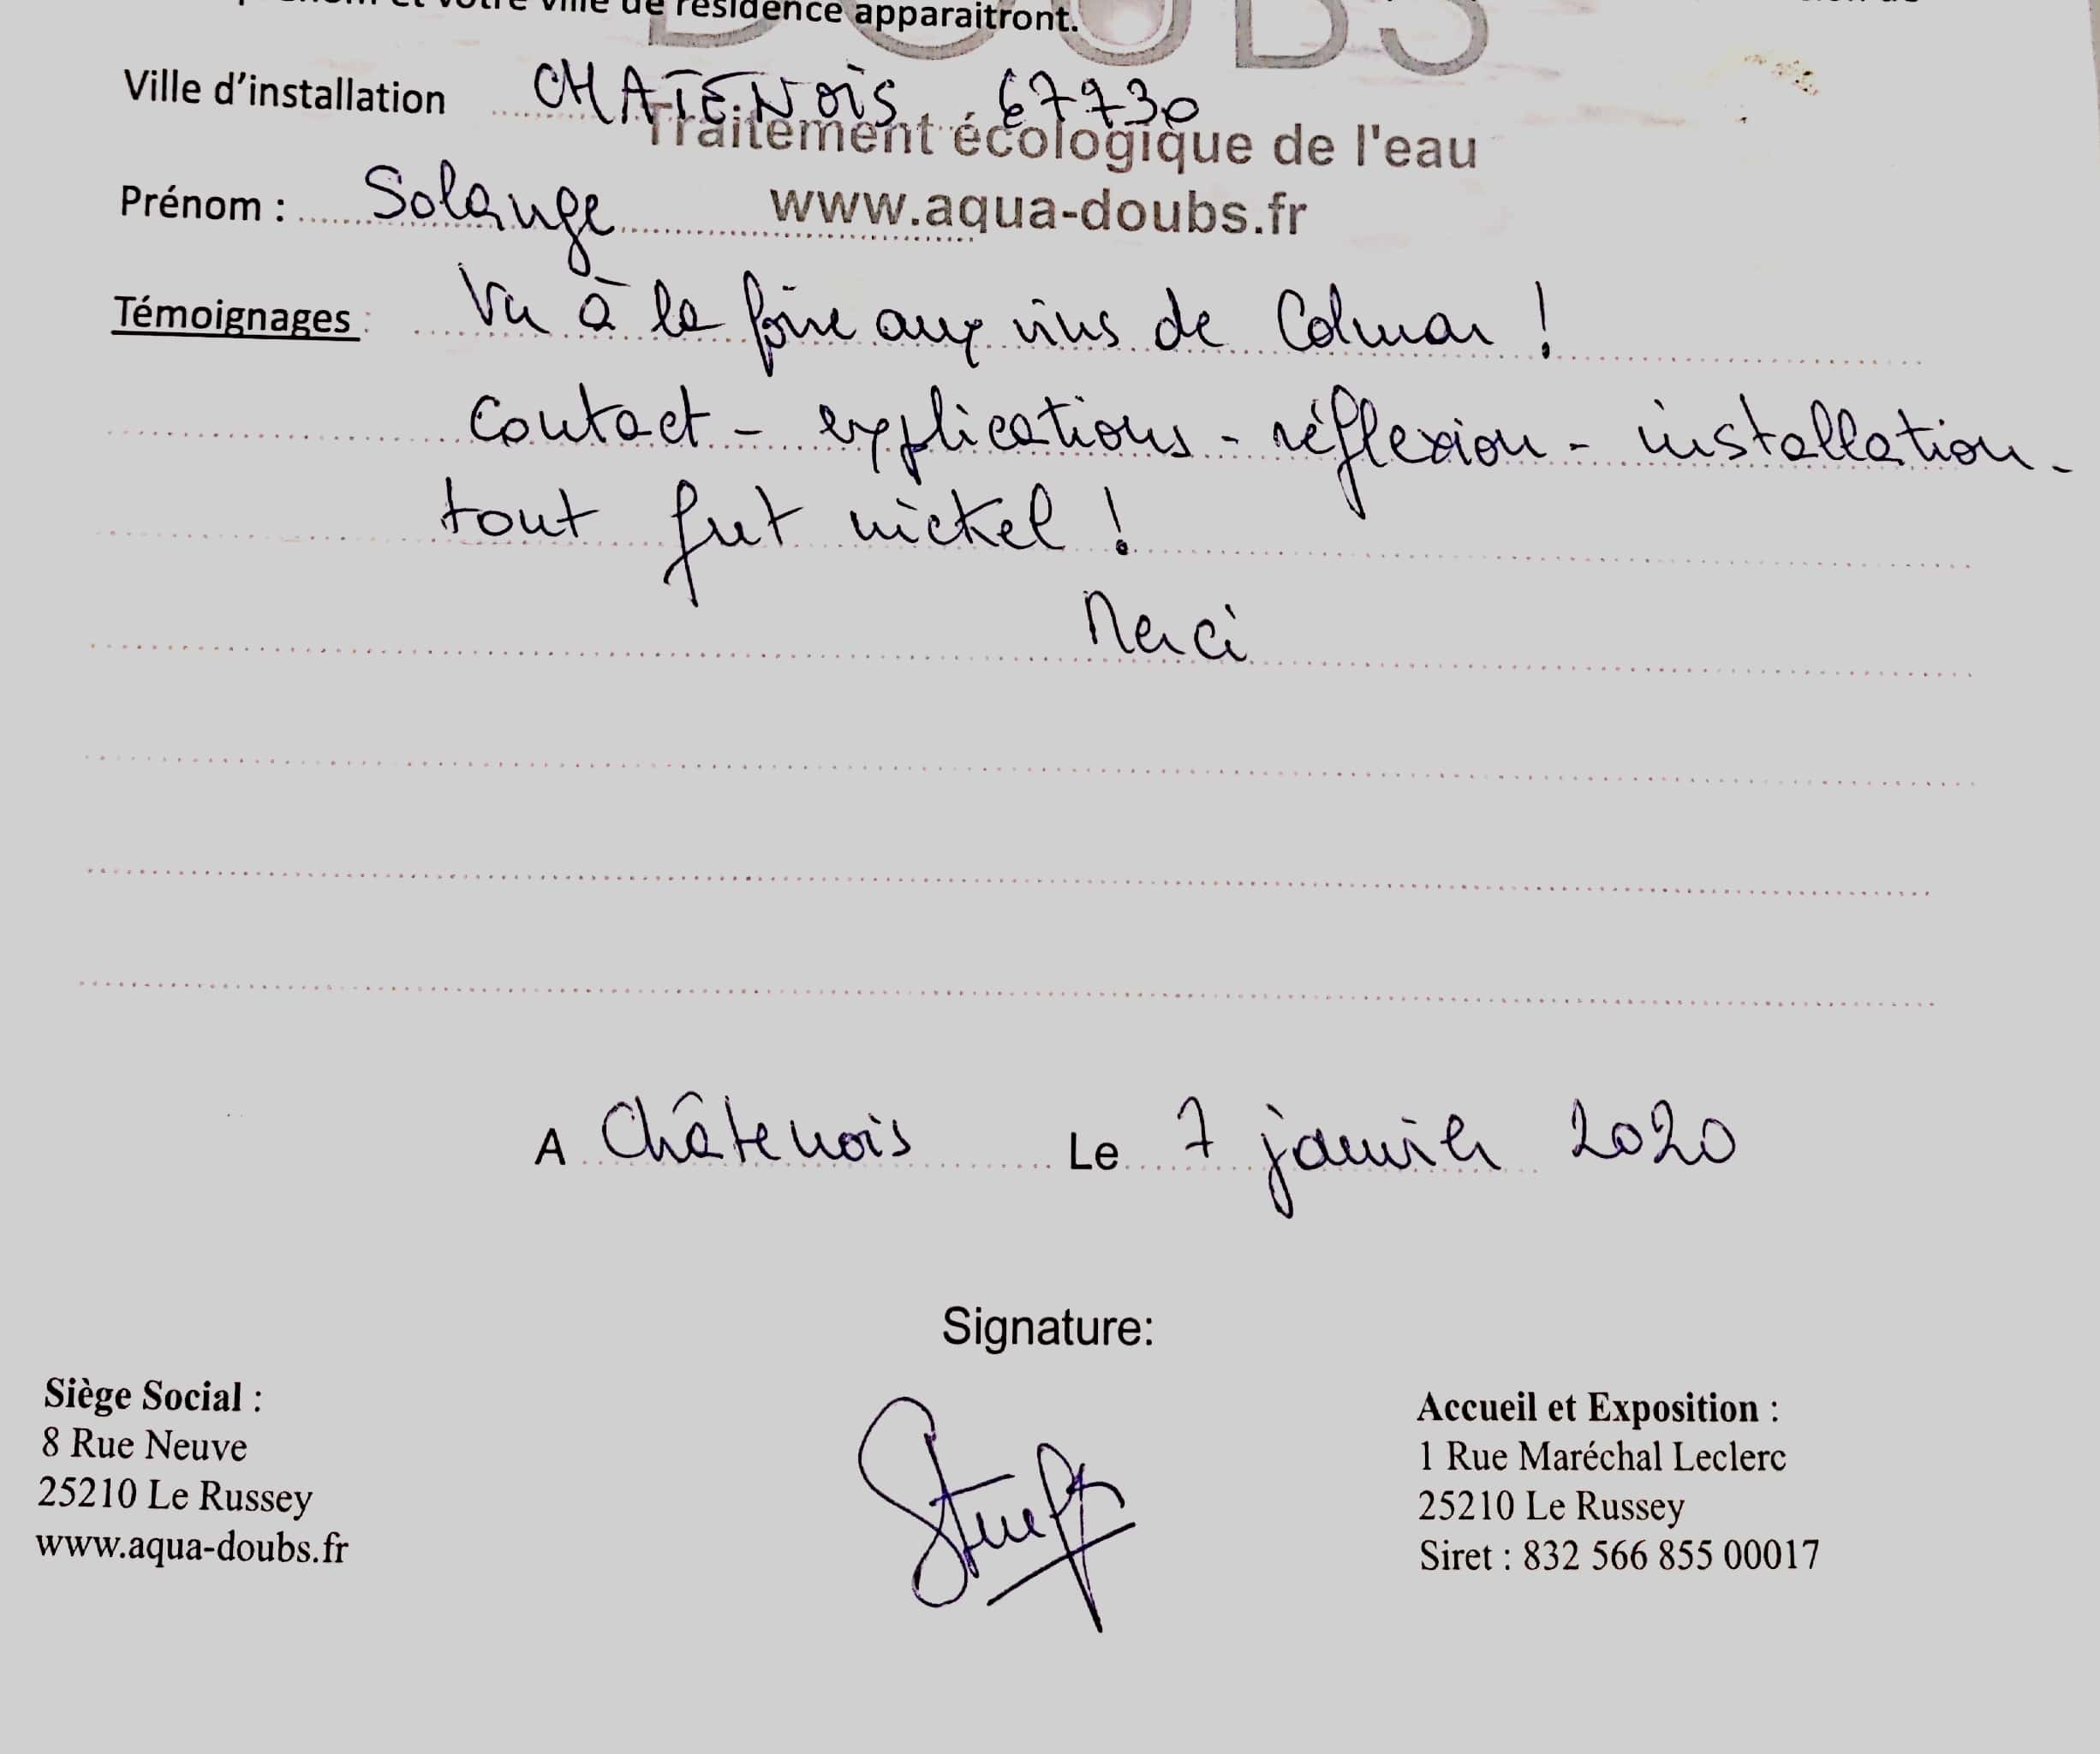 et votre ville de résidence apparaitront.
DOUBS
Ville d'installation CHATENOIS 67730
Traitement écologique de l'eau
Prénom : Solange www.aqua-doubs.fr
Témoignages : Vu à la foire aux vins de Colmar !
Contact - explications - réflexion - installation -
tout fut nickel !
Merci
A Châtenois Le 7 janvier 2020
Signature:
Siège Social :
8 Rue Neuve
25210 Le Russey
www.aqua-doubs.fr
Accueil et Exposition :
1 Rue Maréchal Leclerc
25210 Le Russey
Siret : 832 566 855 00017